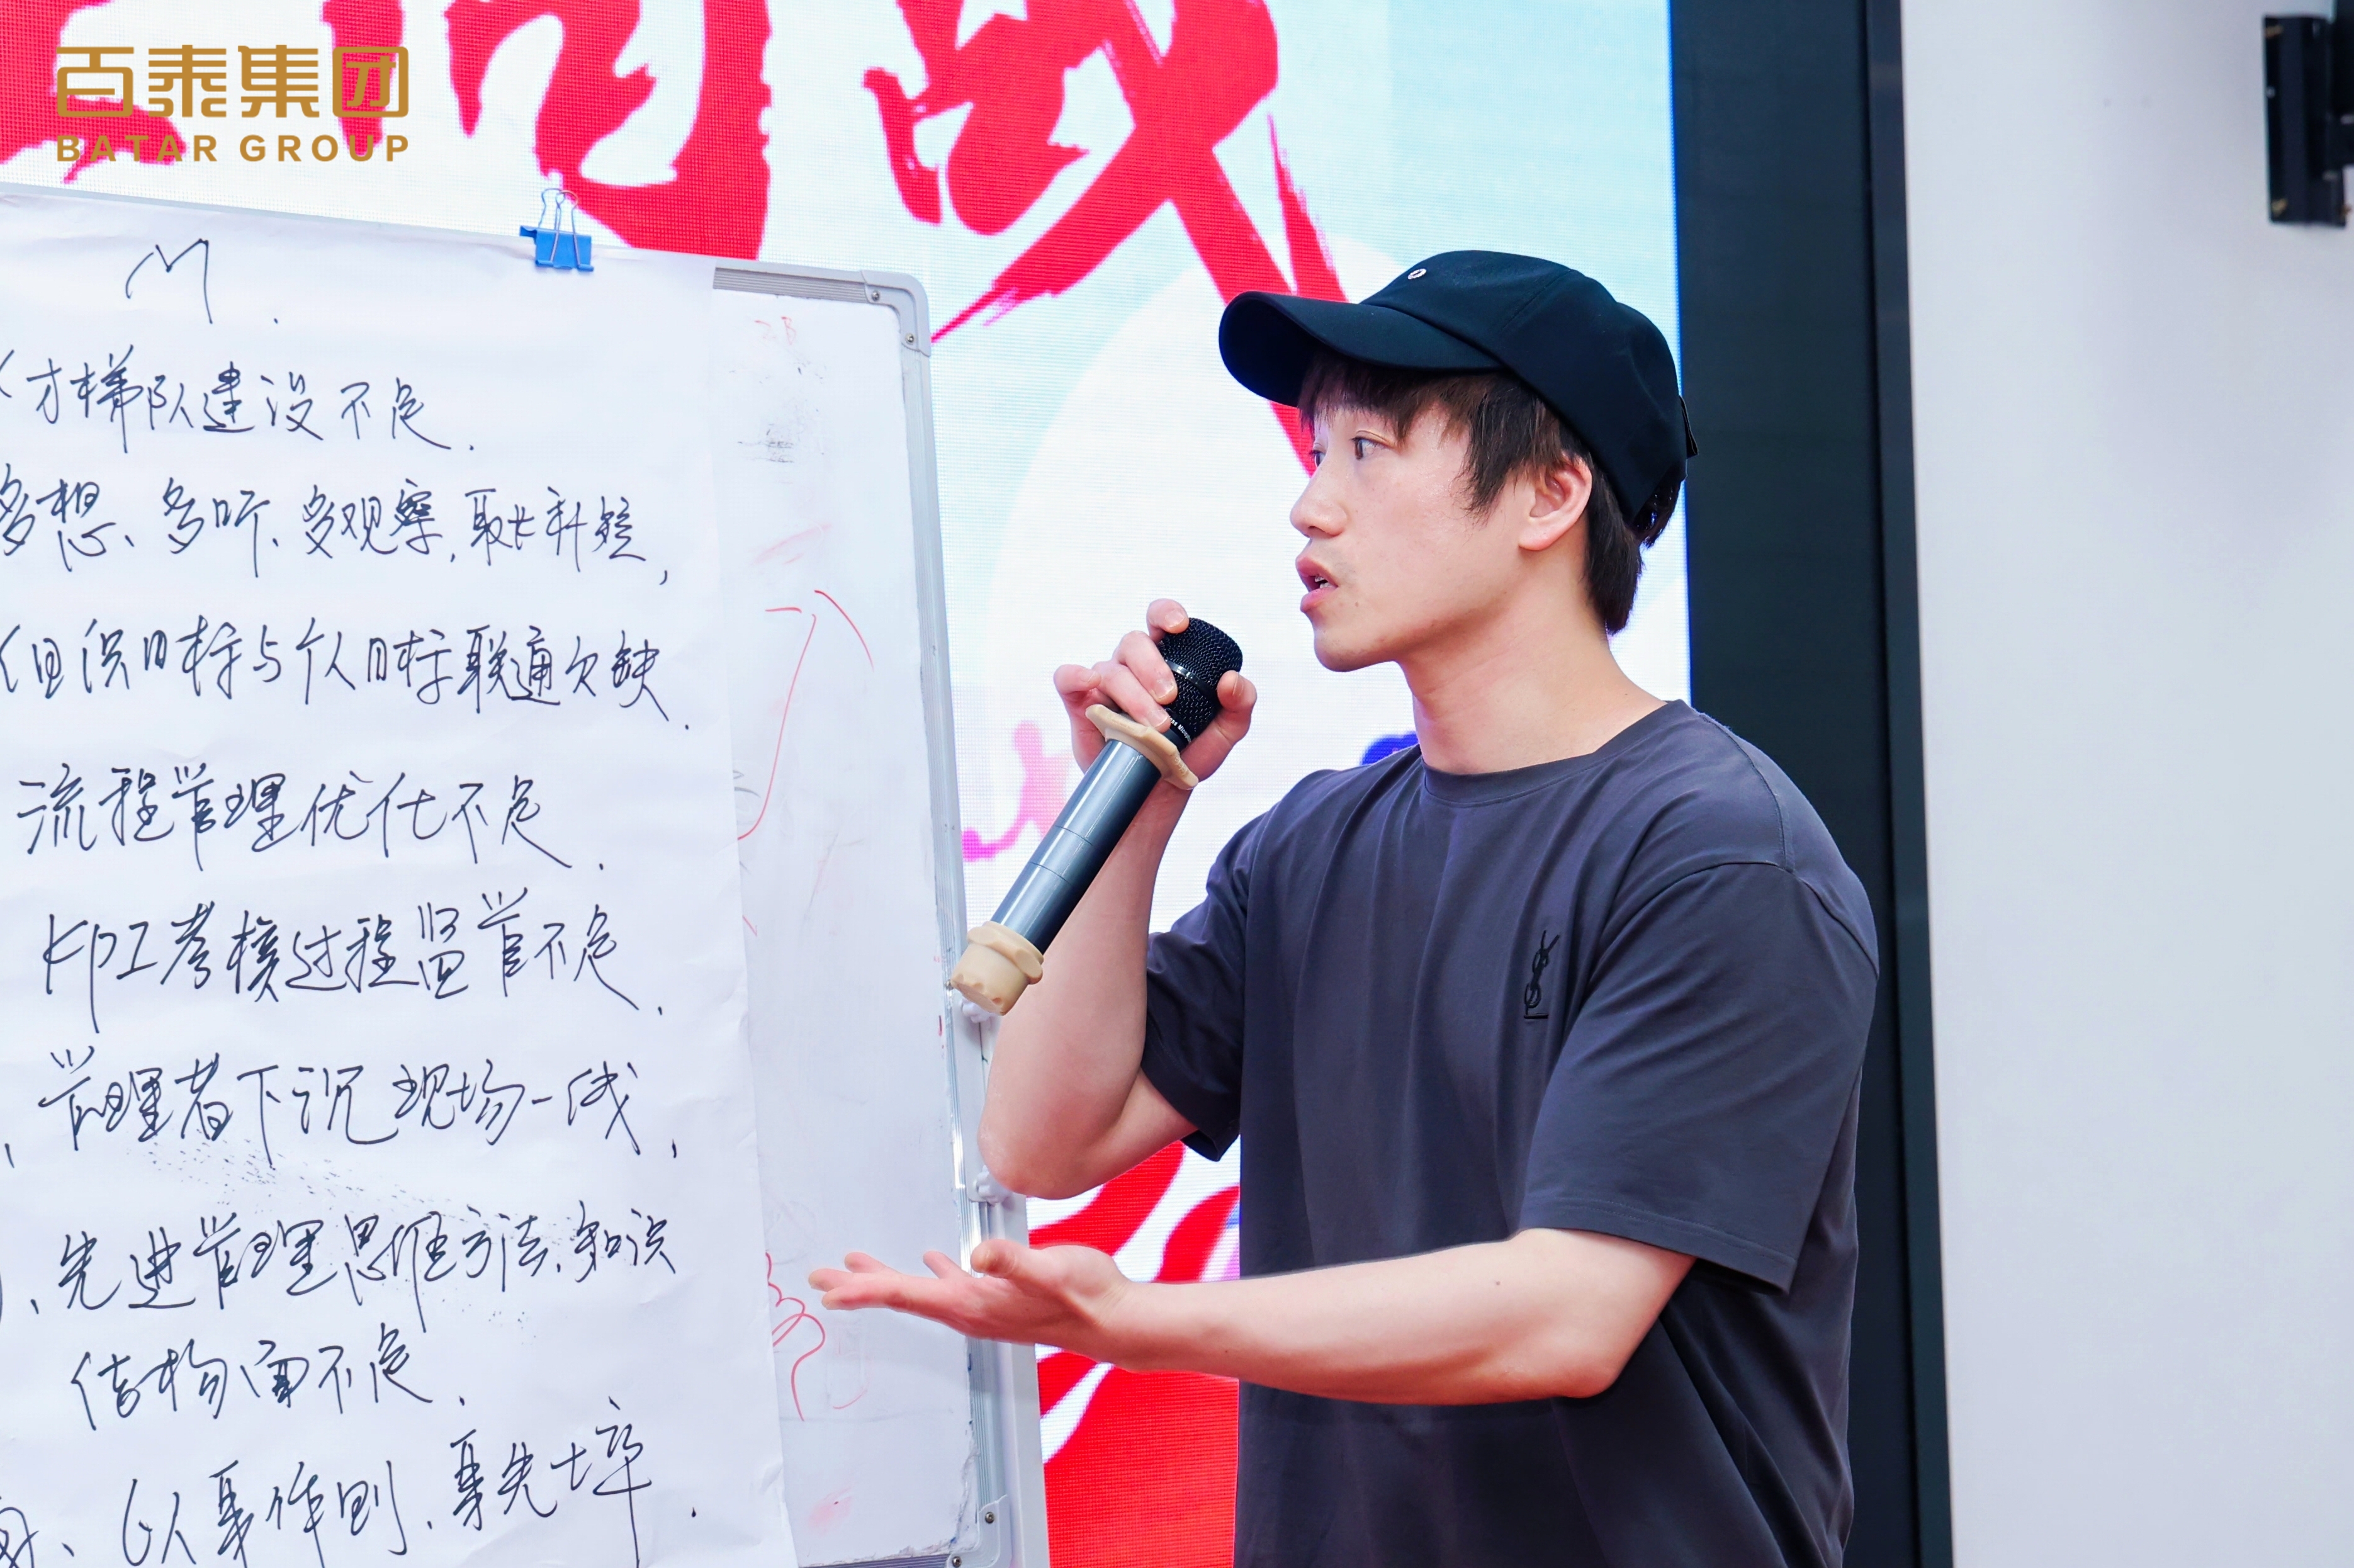 百泰集团
BATAR GROUP
M.
才梯队建设不足.
多想、多听、多观察,取长补短,
组织目标与个人目标联通欠缺.
流程管理优化不足.
KPI考核过程监管不足.
管理者下沉现场一线,
、先进管理思维方法、知识
结构面不足.
、以身作则、身先士卒.
YSL